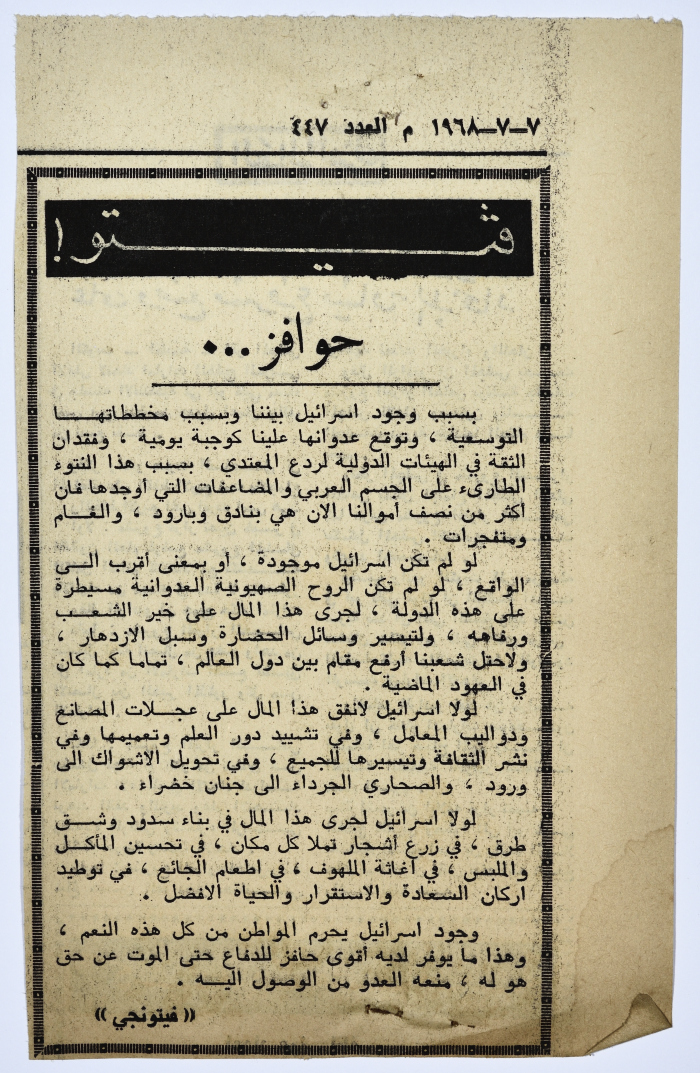 ٧-٧-١٩٦٨ م العدد ٤٤٧
ڤيتو !
حوافز ...
بسبب وجود اسرائيل بيننا وبسبب مخططاتها
التوسعية ، وتوقع عدوانها علينا كوجبة يومية ، وفقدان
الثقة في الهيئات الدولية لردع المعتدي ، بسبب هذا النتوء
الطارىء على الجسم العربي والمضاعفات التي أوجدها فان
أكثر من نصف أموالنا الان هي بنادق وبارود ، والغام
ومتفجرات .
لو لم تكن اسرائيل موجودة ، أو بمعنى أقرب الى
الواقع ، لو لم تكن الروح الصهيونية العدوانية مسيطرة
على هذه الدولة ، لجرى هذا المال على خير الشعب
ورفاهه ، ولتيسير وسائل الحضارة وسبل الازدهار ،
ولاحتل شعبنا أرفع مقام بين دول العالم ، تماما كما كان
في العهود الماضية .
لولا اسرائيل لانفق هذا المال على عجلات المصانع
ودواليب المعامل ، وفي تشييد دور العلم وتعميمها وفي
نشر الثقافة وتيسيرها للجميع ، وفي تحويل الاشواك الى
ورود ، والصحاري الجرداء الى جنان خضراء .
لولا اسرائيل لجرى هذا المال في بناء سدود وشق
طرق ، في زرع أشجار تملا كل مكان ، في تحسين المأكل
والملبس ، في اغاثة الملهوف ، في اطعام الجائع ، في توطيد
اركان السعادة والاستقرار والحياة الافضل .
وجود اسرائيل يحرم المواطن من كل هذه النعم ،
وهذا ما يوفر لديه أقوى حافز للدفاع حتى الموت عن حق
هو له ، منعه العدو من الوصول اليه .
(( فيتونجي ))